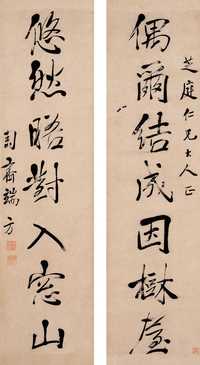 芝庭仁兄大人正
偶爾結成因樹屋
悠然晤對入窗山
匋齋端方